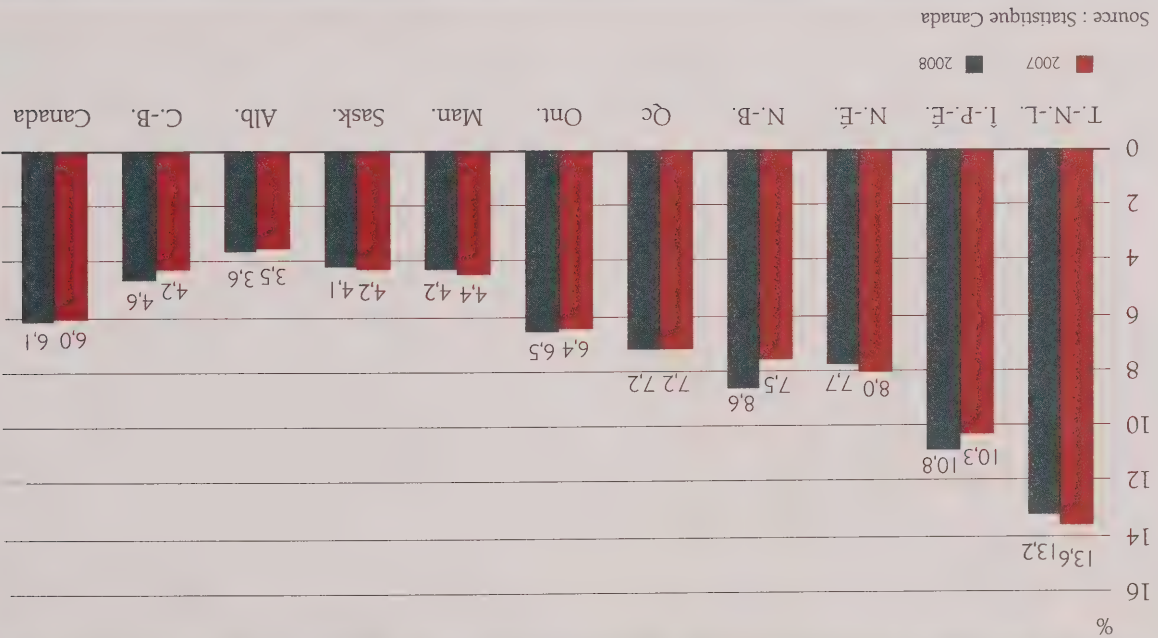 %
16
14
12
10
8
6
4
2
0
13,6 13,2
10,3 10,8
8,0 7,7
7,5 8,6
7,2 7,2
6,4 6,5
4,4 4,2
4,2 4,1
3,5 3,6
4,2 4,6
6,0 6,1
T.-N.-L. Î.-P.-É. N.-É. N.-B. Qc Ont. Man. Sask. Alb. C.-B. Canada
2007 2008
Source : Statistique Canada